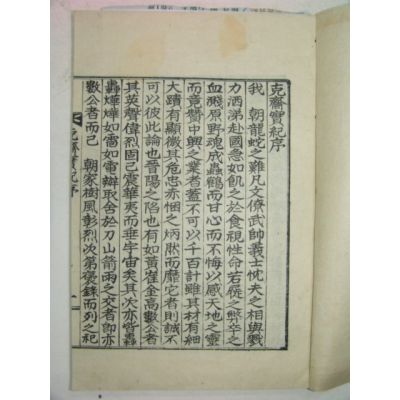 克齋實紀序
我 朝龍蛇之難凡文僚武帥義士忱夫之相與戮
力洒涕赴國急如飢之於食視性命若屣之弊卒之
血濺原野魂成蟲鶴而甘心而不悔以感天地之靈
而竟贊中興之業者蓋不可以千百計雖其材有細
大蹟有顯微其危忠赤悃之炳然而靡它者則誠不
可以彼此論也晋陽之陷也有如黃崔金高數公者
其英聲偉烈固已震華夷而垂宇宙矣其次亦皆轟
轟燁燁如雷如電辦取舍於刀山箭雨之交者卽亦
數公者而已 朝家樹風彰烈次第褒錄而列之祀
克齋實紀序
一